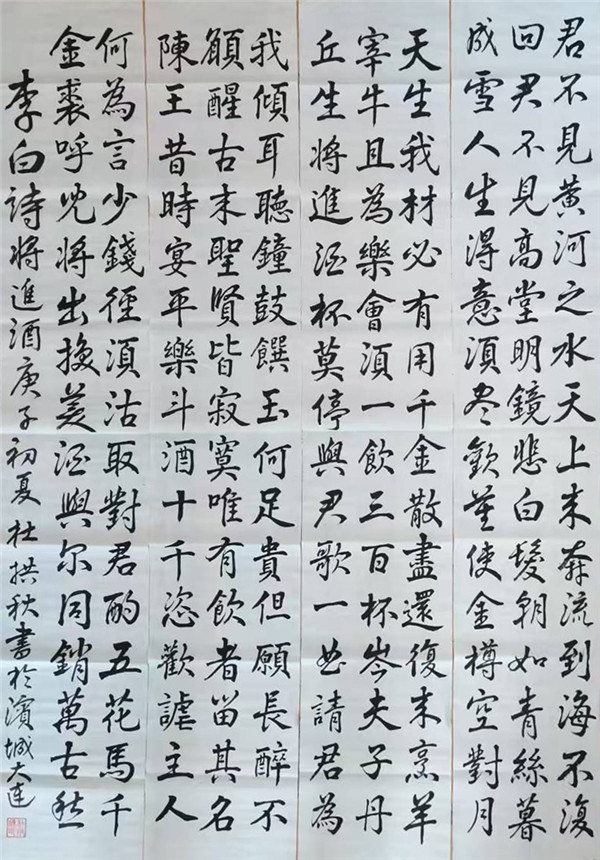 君不見黃河之水天上来奔流到海不復
回君不見高堂明鏡悲白髮朝如青絲暮
成雪人生得意須尽歡莫使金樽空對月
天生我材必有用千金散盡還復来烹羊
宰牛且為樂會須一飲三百杯岑夫子丹
丘生將進酒杯莫停與君歌一曲請君為
我傾耳聽鐘鼓饌玉何足貴但願長醉不
願醒古来聖賢皆寂寞唯有飲者留其名
陳王昔時宴平樂斗酒十千恣歡謔主人
何為言少錢徑須沽取對君酌五花馬千
金裘呼兒將出換美酒與尔同銷萬古愁
李白詩將進酒庚子初夏杜拱秋書於濱城大連